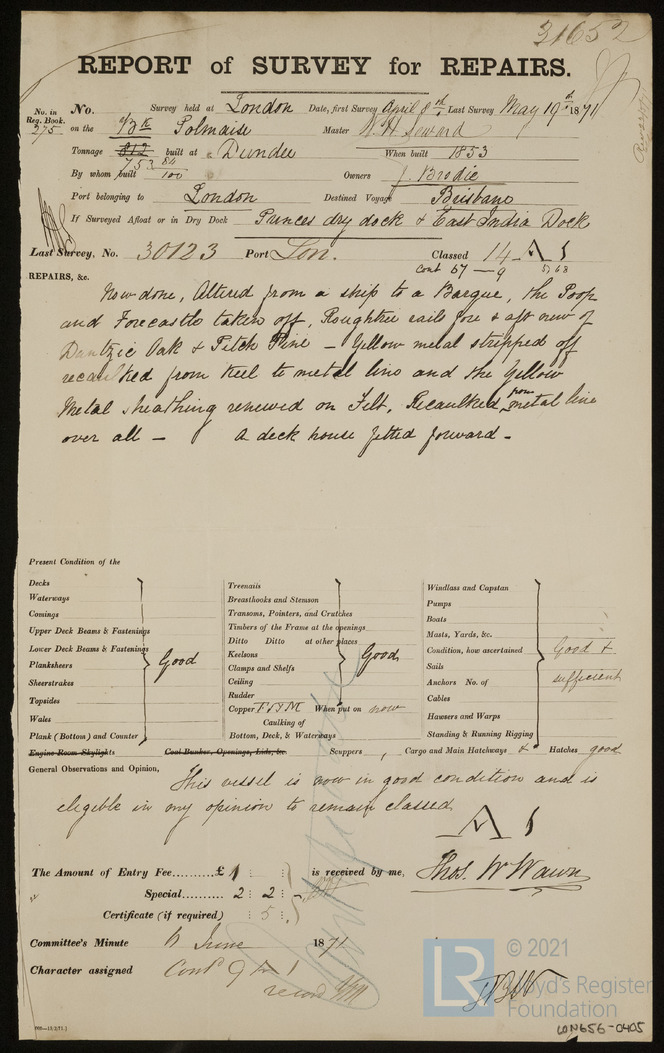 31652
REPORT of SURVEY for REPAIRS.
No. in Reg. Book. 375
No. Survey held at London Date, first Survey April 8th Last Survey May 19th 1871
on the Bk Polmaise Master W. H. Seward
Tonnage 812 built at Dundee When built 1853
753 84/100
By whom built Owners J. Brodie
Port belonging to London Destined Voyage Brisbane
If Surveyed Afloat or in Dry Dock Princes dry dock & East India Dock
Last Survey, No. 30123 Port Lon. Classed 14 A 1
Cont 67 — 9 5,68
REPAIRS, &c.
Now done, Altered from a ship to a Barque, the Poop
and Forecastle taken off, Roughtree rail fore & aft new of
Dantzic Oak & Pitch Pine — Yellow metal stripped off
recaulked from keel to metal line and the Yellow
Metal sheathing renewed on Felt, Recaulked from metal line
over all — A deck house fitted forward —
Present Condition of the
Decks
Waterways
Comings
Upper Deck Beams & Fastenings
Lower Deck Beams & Fastenings
Planksheers
Sheerstrakes
Topsides
Wales
Plank (Bottom) and Counter
Good
Treenails
Breasthooks and Stemson
Transoms, Pointers, and Crutches
Timbers of the Frame at the openings
Ditto Ditto at other places
Keelsons
Clamps and Shelfs
Ceiling
Rudder
Good
Copper When put on now
Caulking of
Bottom, Deck, & Waterways
Windlass and Capstan
Pumps
Boats
Masts, Yards, &c.
Condition, how ascertained
Sails
Anchors No. of
Cables
Hawsers and Warps
Standing & Running Rigging
Good &
sufficient
Engine Room Skylights Coal Bunker, Openings, Lids, &c. Scuppers , Cargo and Main Hatchways & Hatches good
General Observations and Opinion,
This vessel is now in good condition and is
eligible in my opinion to remain classed
A 1
The Amount of Entry Fee.........£ 1 : : is received by me, Thos. W Wawn
Special......... 2 : 2 : -
Certificate (if required) : 5 :
Committee's Minute 6 June 1871
Character assigned Contd 9 A 1
© 2021
LR
Lloyd's Register
Foundation
LON656-0405